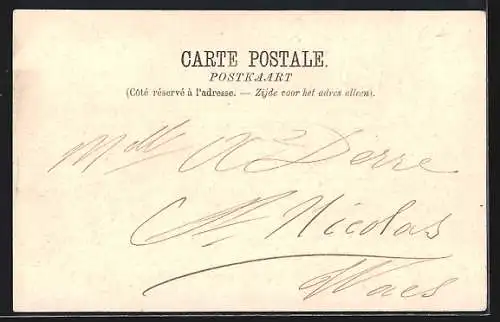 CARTE POSTALE.
POSTKAART
(Côté réservé à l'adresse. — Zijde voor het adres alleen).
Mlle Derre
St. Nicolas
Waes